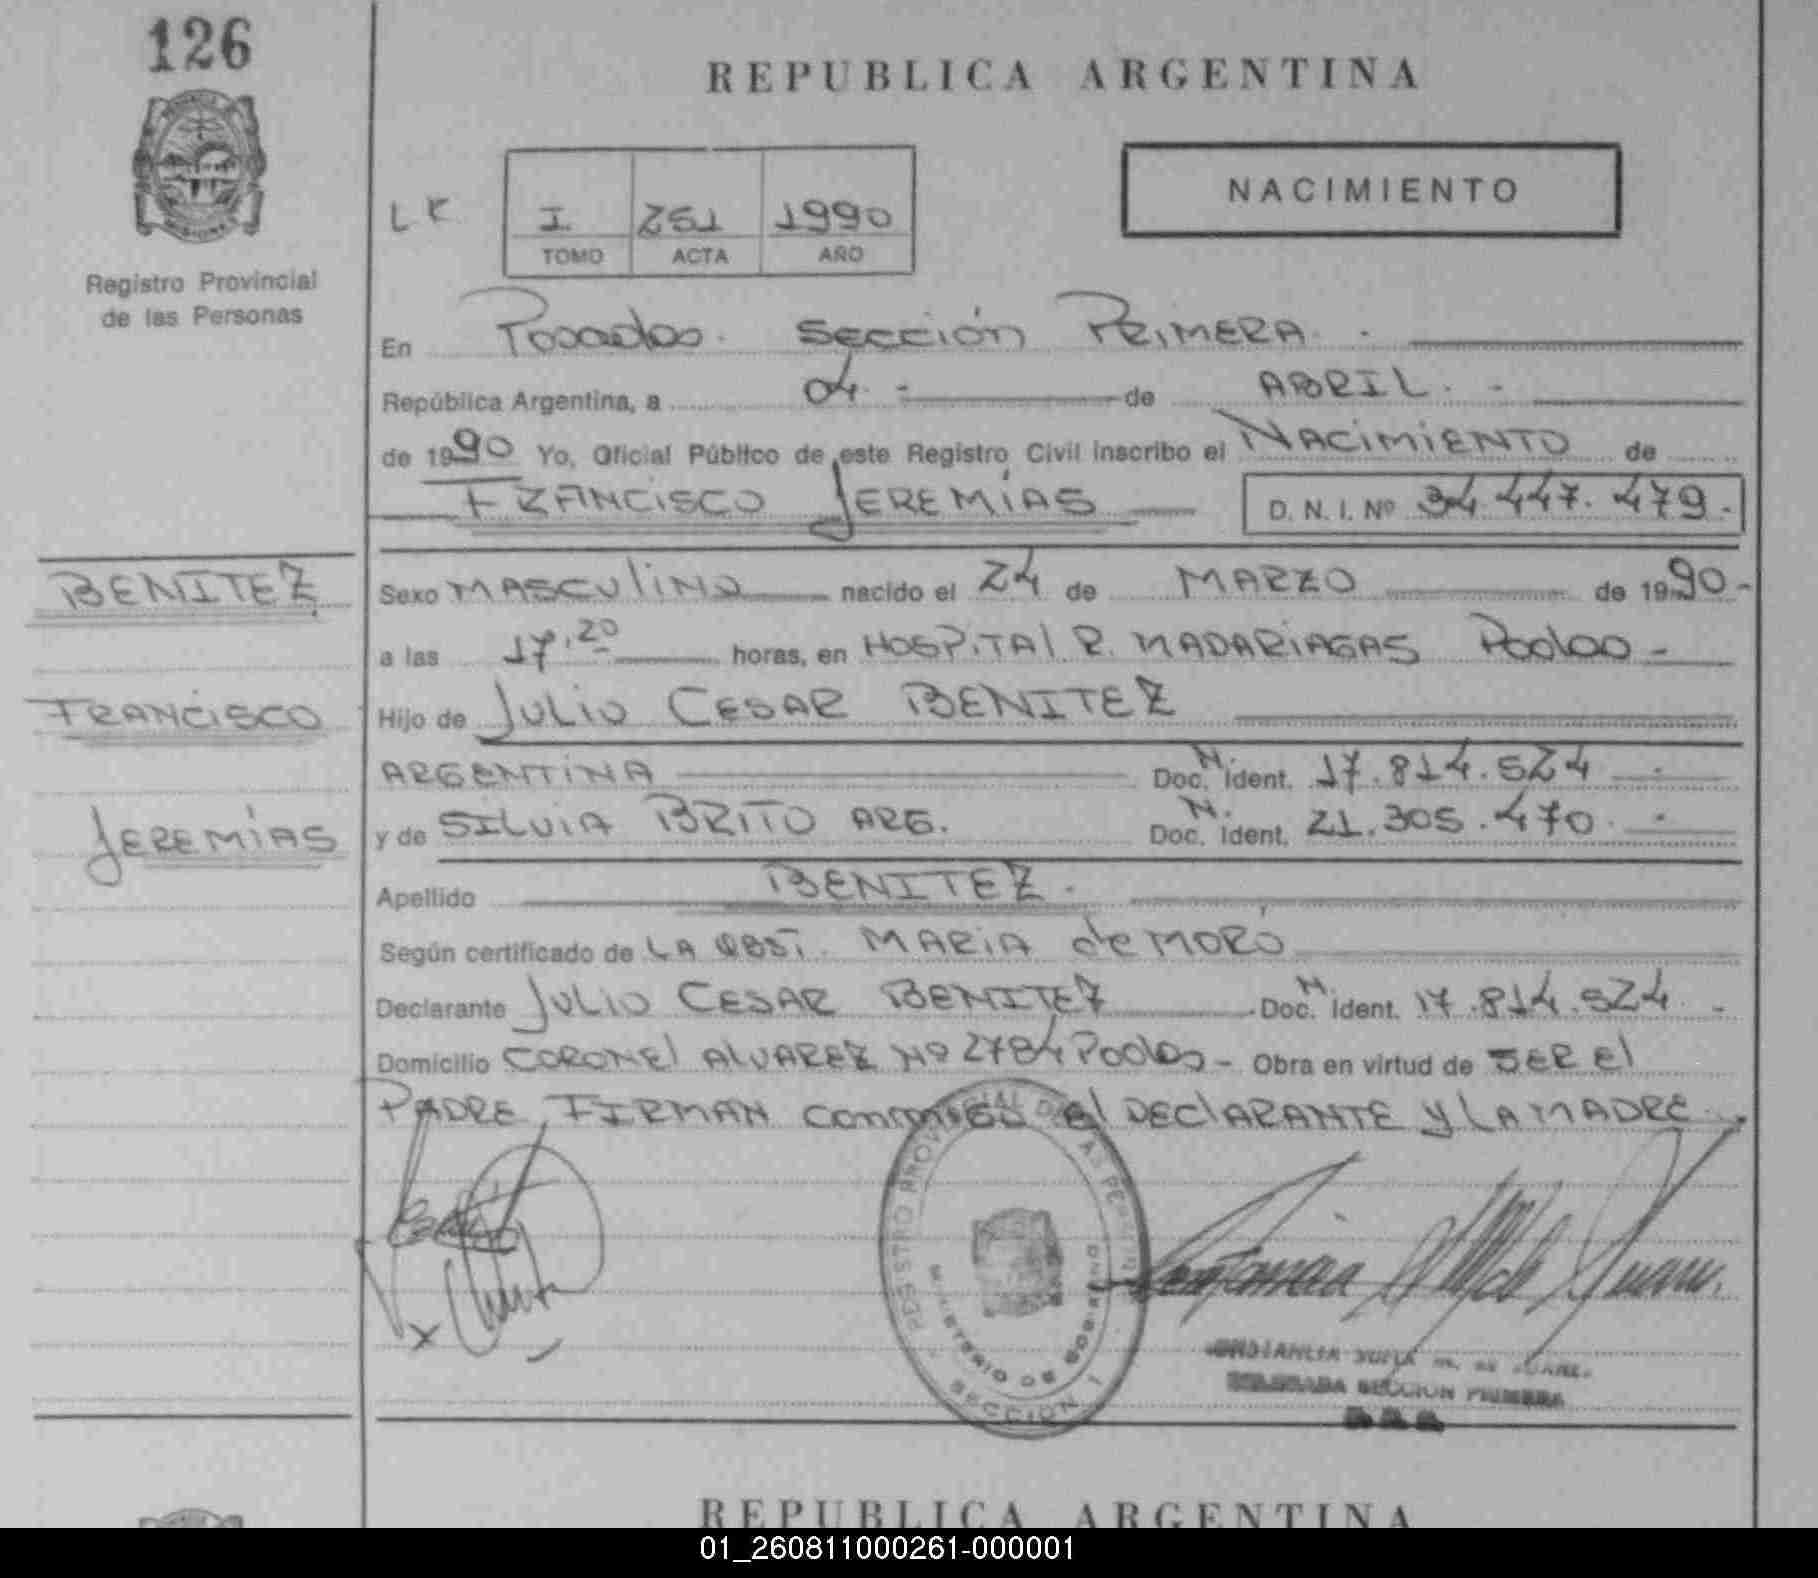 126
REPUBLICA ARGENTINA
NACIMIENTO
LK
I 251 1990
TOMO ACTA AÑO
Registro Provincial
de las Personas
En Posadas. Sección PRIMERA.
República Argentina, a 04 de ABRIL.
de 1990 Yo, Oficial Público de este Registro Civil inscribo el NACIMIENTO de
FRANCISCO JEREMÍAS D. N. I. Nº 34.447.479.
BENITEZ
Sexo MASCULINO nacido el 24 de MARZO de 1990-
a las 17.20 horas, en HOSPITAL R. MADARIAGAS Podas -
FRANCISCO
Hijo de JULIO CESAR BENITEZ
ARGENTINA Doc. N. Ident. 17.814.524
JEREMÍAS
y de SILVIA BRITO ARG. Doc. N. Ident. 21.305.470.
Apellido BENITEZ.
Según certificado de LA OBST. MARIA de MORO
Declarante JULIO CESAR BENITEZ Doc. N. Ident. 17.814.524 -
Domicilio CORONEL ALVAREZ Nº 2784 Podas - Obra en virtud de SER El
PADRE FIRMAN conmigo el DECLARANTE y LA MADRE
REGISTRO PROVINCIAL DE LAS PERSONAS
MINISTERIO DE GOBIERNO
SECCION 1
DELEGADA SECCION PRIMERA
REPUBLICA ARGENTINA
01_260811000261-000001